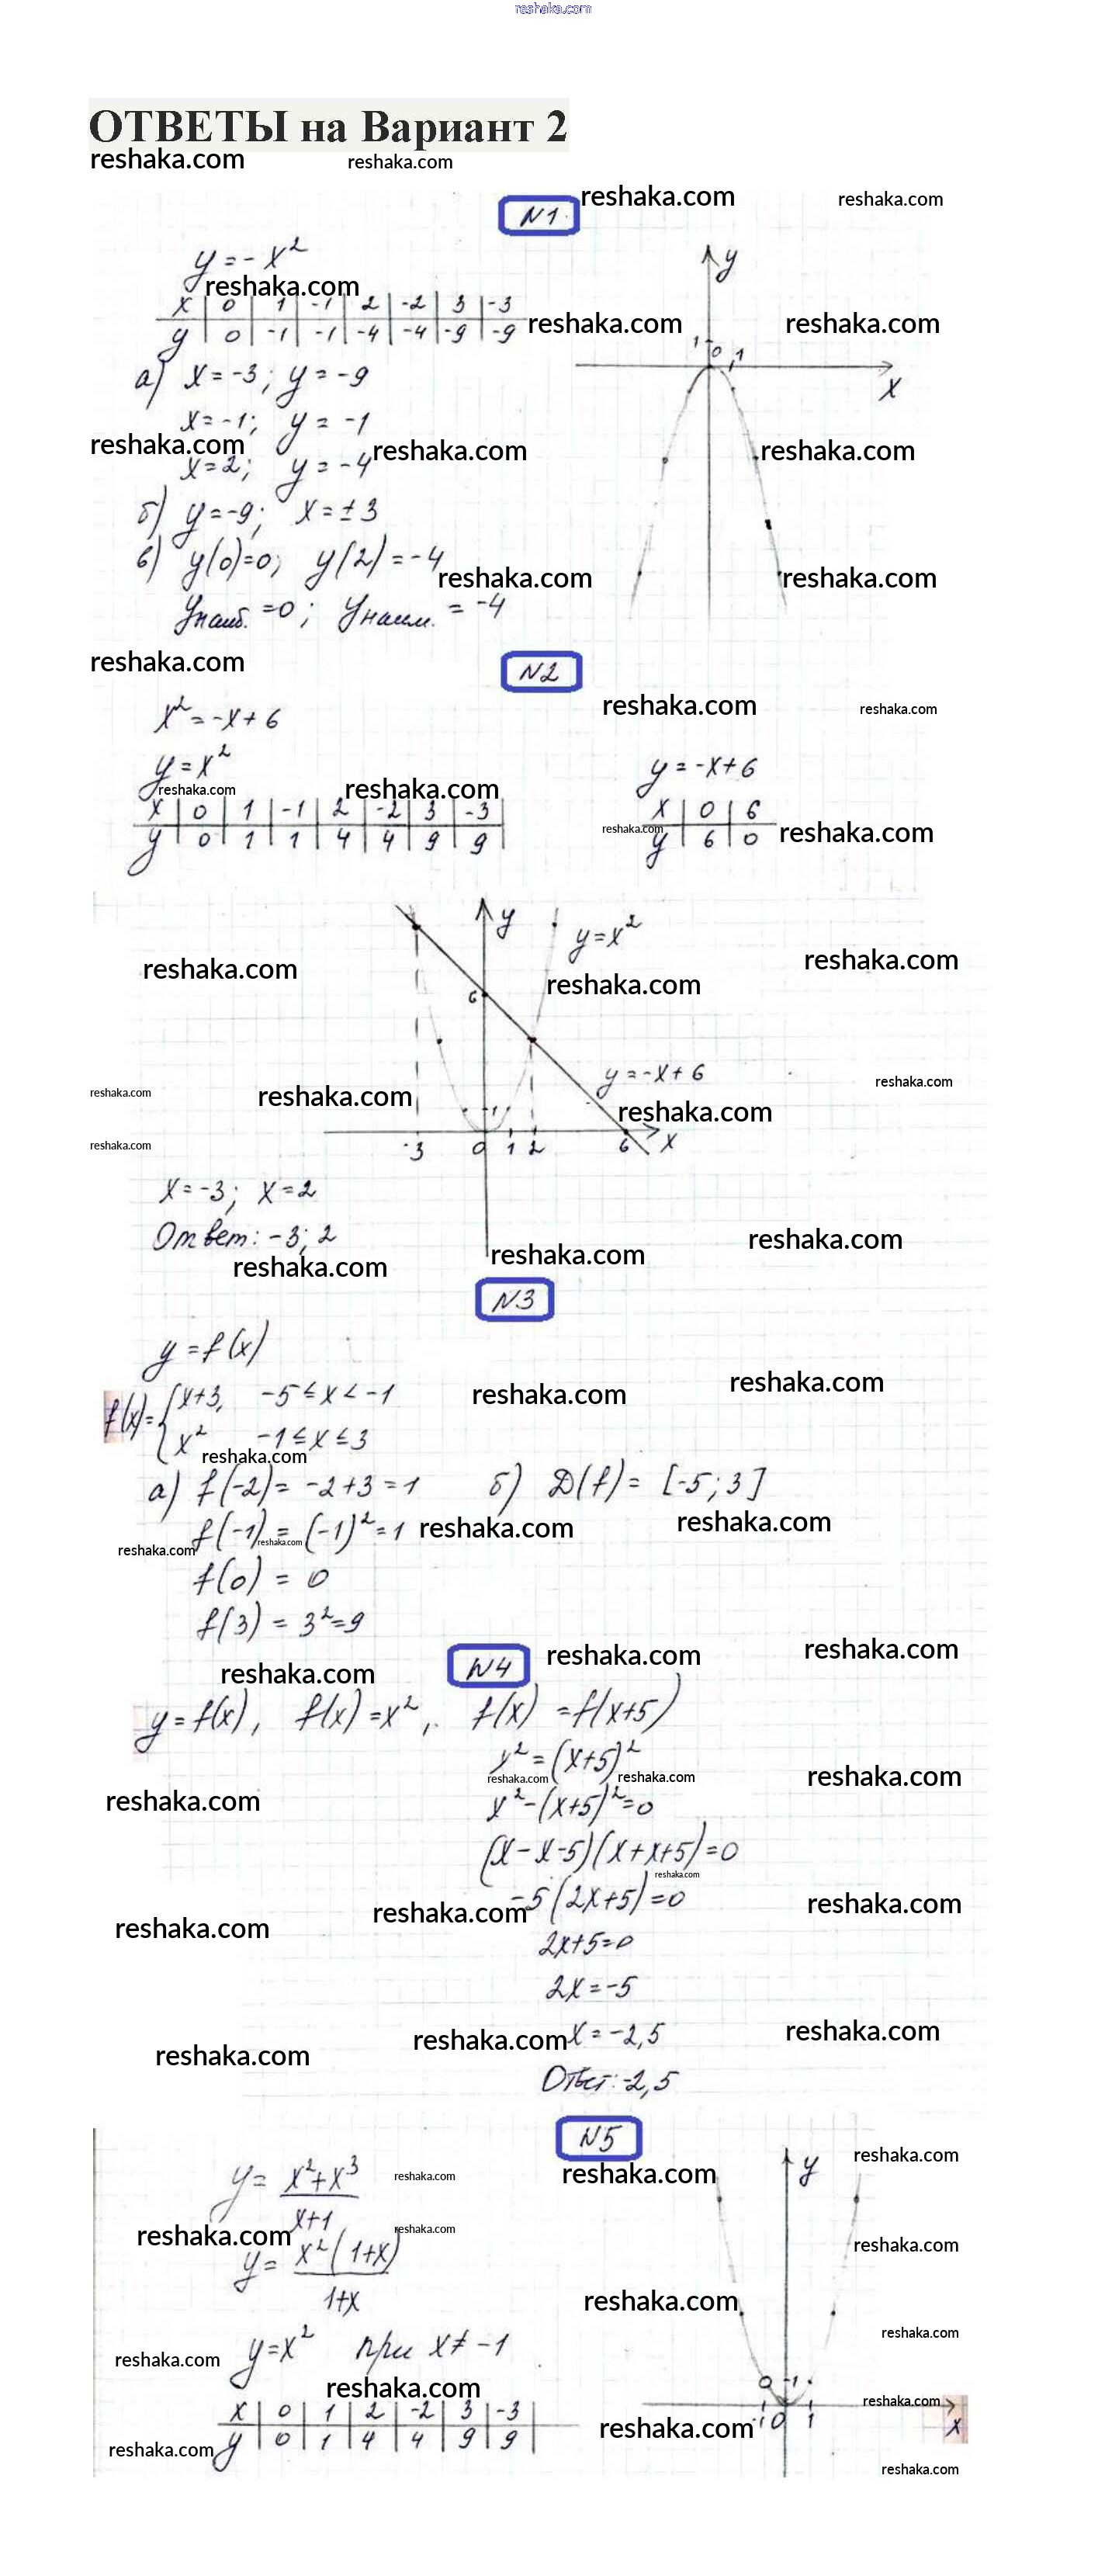 reshaka.com
ОТВЕТЫ на Вариант 2
reshaka.com reshaka.com
N1 reshaka.com reshaka.com
y = -x²
reshaka.com
x | 0 | 1 | -1 | 2 | -2 | 3 | -3
y | 0 | -1 | -1 | -4 | -4 | -9 | -9
reshaka.com reshaka.com
y
1 0 1
x
а) x = -3; y = -9
x = -1; y = -1
reshaka.com reshaka.com reshaka.com
x = 2; y = -4
б) y = -9; x = ± 3
в) y(0)=0; y(2) = -4
reshaka.com reshaka.com
yнаиб. = 0; yнаим. = -4
reshaka.com
N2
reshaka.com reshaka.com
x² = -x + 6
y = x²
y = -x + 6
reshaka.com reshaka.com
x | 0 | 1 | -1 | 2 | -2 | 3 | -3
y | 0 | 1 | 1 | 4 | 4 | 9 | 9
x | 0 | 6
y | 6 | 0
reshaka.com reshaka.com
y
y = x²
reshaka.com reshaka.com reshaka.com
6
y = -x + 6
reshaka.com reshaka.com reshaka.com
1 reshaka.com
reshaka.com
-3 0 1 2 6 x
x = -3; x = 2
Ответ: -3; 2
reshaka.com reshaka.com reshaka.com
N3
y = f(x)
f(x) = { x+3, -5 ≤ x < -1
x² -1 ≤ x ≤ 3
reshaka.com reshaka.com
reshaka.com
а) f(-2) = -2+3 = 1 б) D(f) = [-5; 3]
f(-1) = (-1)² = 1 reshaka.com reshaka.com
reshaka.com reshaka.com
f(0) = 0
f(3) = 3² = 9
N4 reshaka.com reshaka.com
reshaka.com
y = f(x), f(x) = x², f(x) = f(x+5)
x² = (x+5)²
reshaka.com reshaka.com reshaka.com
reshaka.com
x² - (x+5)² = 0
(x - x - 5)(x + x + 5) = 0
reshaka.com
-5(2x+5) = 0
reshaka.com reshaka.com reshaka.com
2x+5=0
2x = -5
x = -2,5
reshaka.com reshaka.com reshaka.com
Ответ: -2,5
N5
reshaka.com reshaka.com reshaka.com
y = x²+x³
x+1
y
reshaka.com reshaka.com reshaka.com
y = x²(1+x)
1+x
reshaka.com reshaka.com
y = x² при x ≠ -1
reshaka.com
reshaka.com
x | 0 | 1 | 2 | -2 | 3 | -3
y | 0 | 1 | 4 | 4 | 9 | 9
1
reshaka.com
-1 0 1 x
reshaka.com reshaka.com
reshaka.com